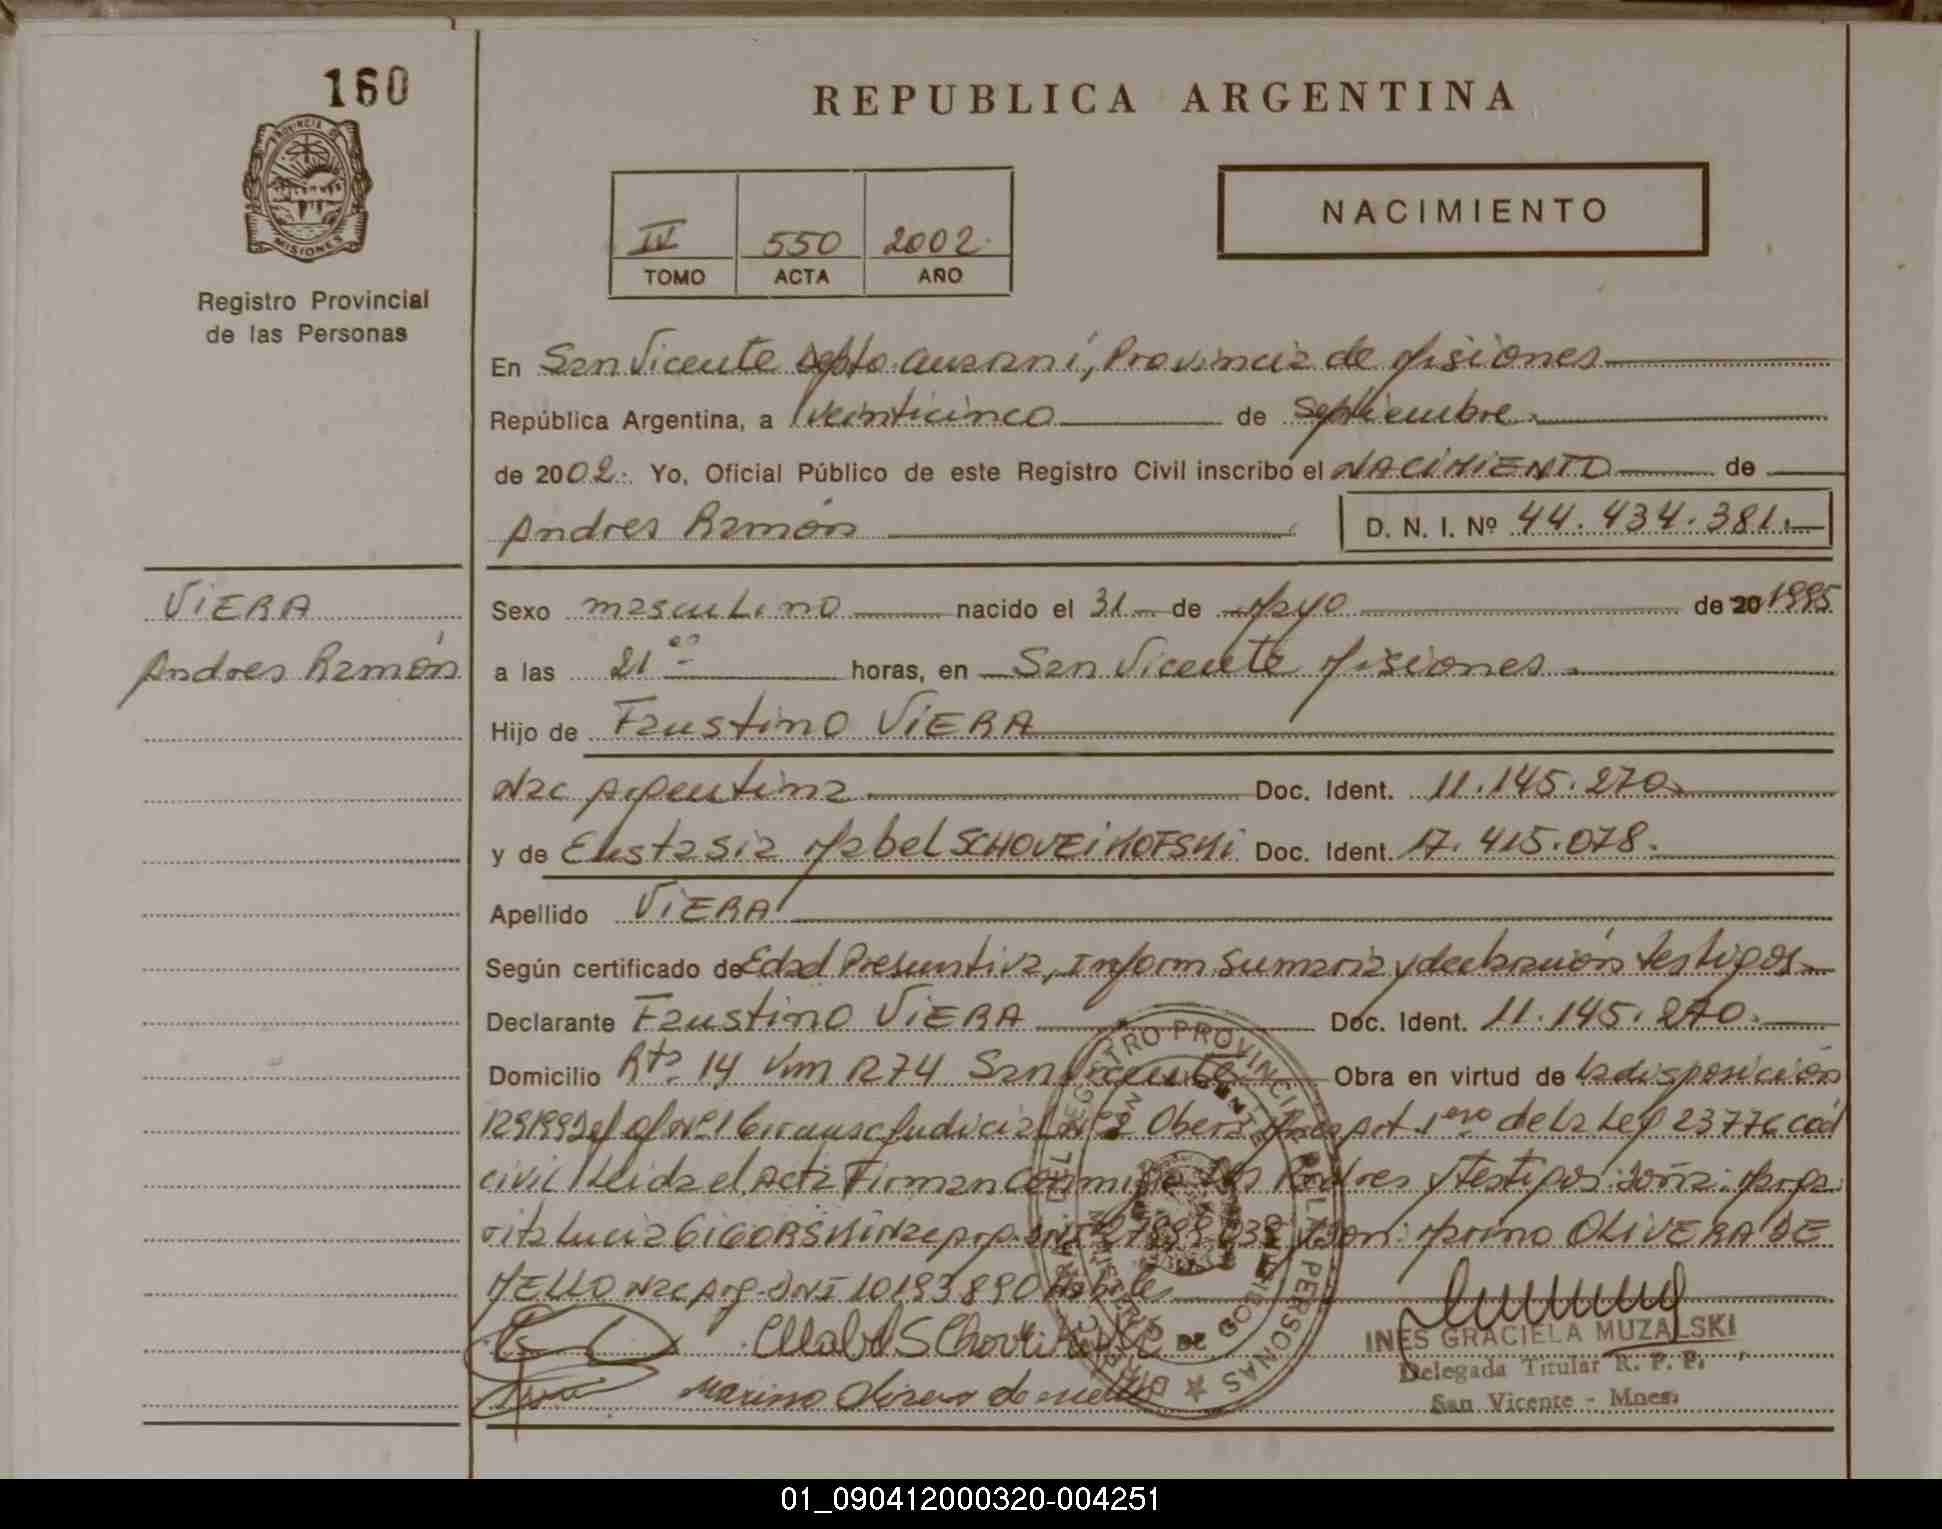 160
REPUBLICA ARGENTINA
PROVINCIA DE MISIONES
Registro Provincial
de las Personas
IV 550 2002
TOMO ACTA AÑO
NACIMIENTO
En San Vicente Dpto Guaraní, Provincia de Misiones
República Argentina, a Veinticinco de Septiembre
de 2002. Yo, Oficial Público de este Registro Civil inscribo el NACIMIENTO de
Andres Ramón D. N. I. Nº 44.434.381.
VIERA
Andres Ramón
Sexo masculino nacido el 31 de Mayo de 20 1995
a las 21 horas, en San Vicente Misiones
Hijo de Faustino VIERA
Nac Argentina Doc. Ident. 11.145.270
y de Eustasia Mabel SCHOVEIKOFSKI Doc. Ident. 17.415.078.
Apellido VIERA
Según certificado de Edad Presuntiva, Inform Sumaria y declaración testigos
Declarante Faustino VIERA Doc. Ident. 11.145.270.
Domicilio Rta 14 Km 1274 San Vicente Obra en virtud de la disposición
Judicial Nº 2 Oberá art. 1ero de la Ley 23776 cod
civil Leida el Acta Firman Conmigo los Padres y testigos: Doña: Marga
rita Lucia GIGORSKI Nac Arg. DNI y Don: Marino OLIVERA DE
MELLO Nac Arg. DNI 10193890
Mabel Schoveikofski
Marino Olivera de mello
INES GRACIELA MUZALSKI
Delegada Titular R. P. P.
San Vicente - Mnes.
REGISTRO PROVINCIAL DE LAS PERSONAS
01_090412000320-004251